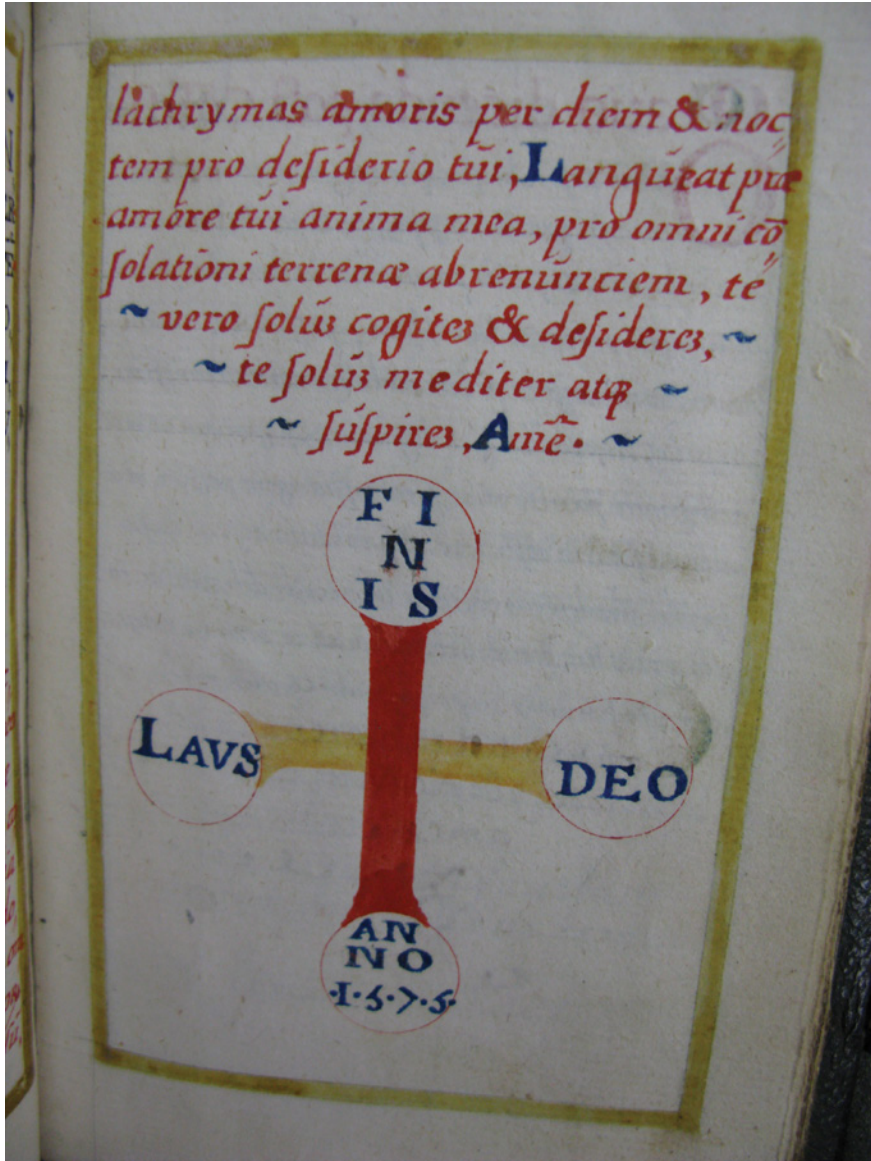 lachrymas amoris per diem & noc„
tem pro deſiderio túi, Langúeat præ
amore túi anima mea, pro omni cō„
ſolationi terrenæ abrenúnciem, té
~ vero ſolúꝫ cogiteꝫ & deſidereꝫ, ~
~ te ſolúꝫ mediter atqꝫ ~
~ ſúſpireꝫ, Amē. ~
F I
N
I S
LAVS
DEO
AN
NO
·1·5·7·5·